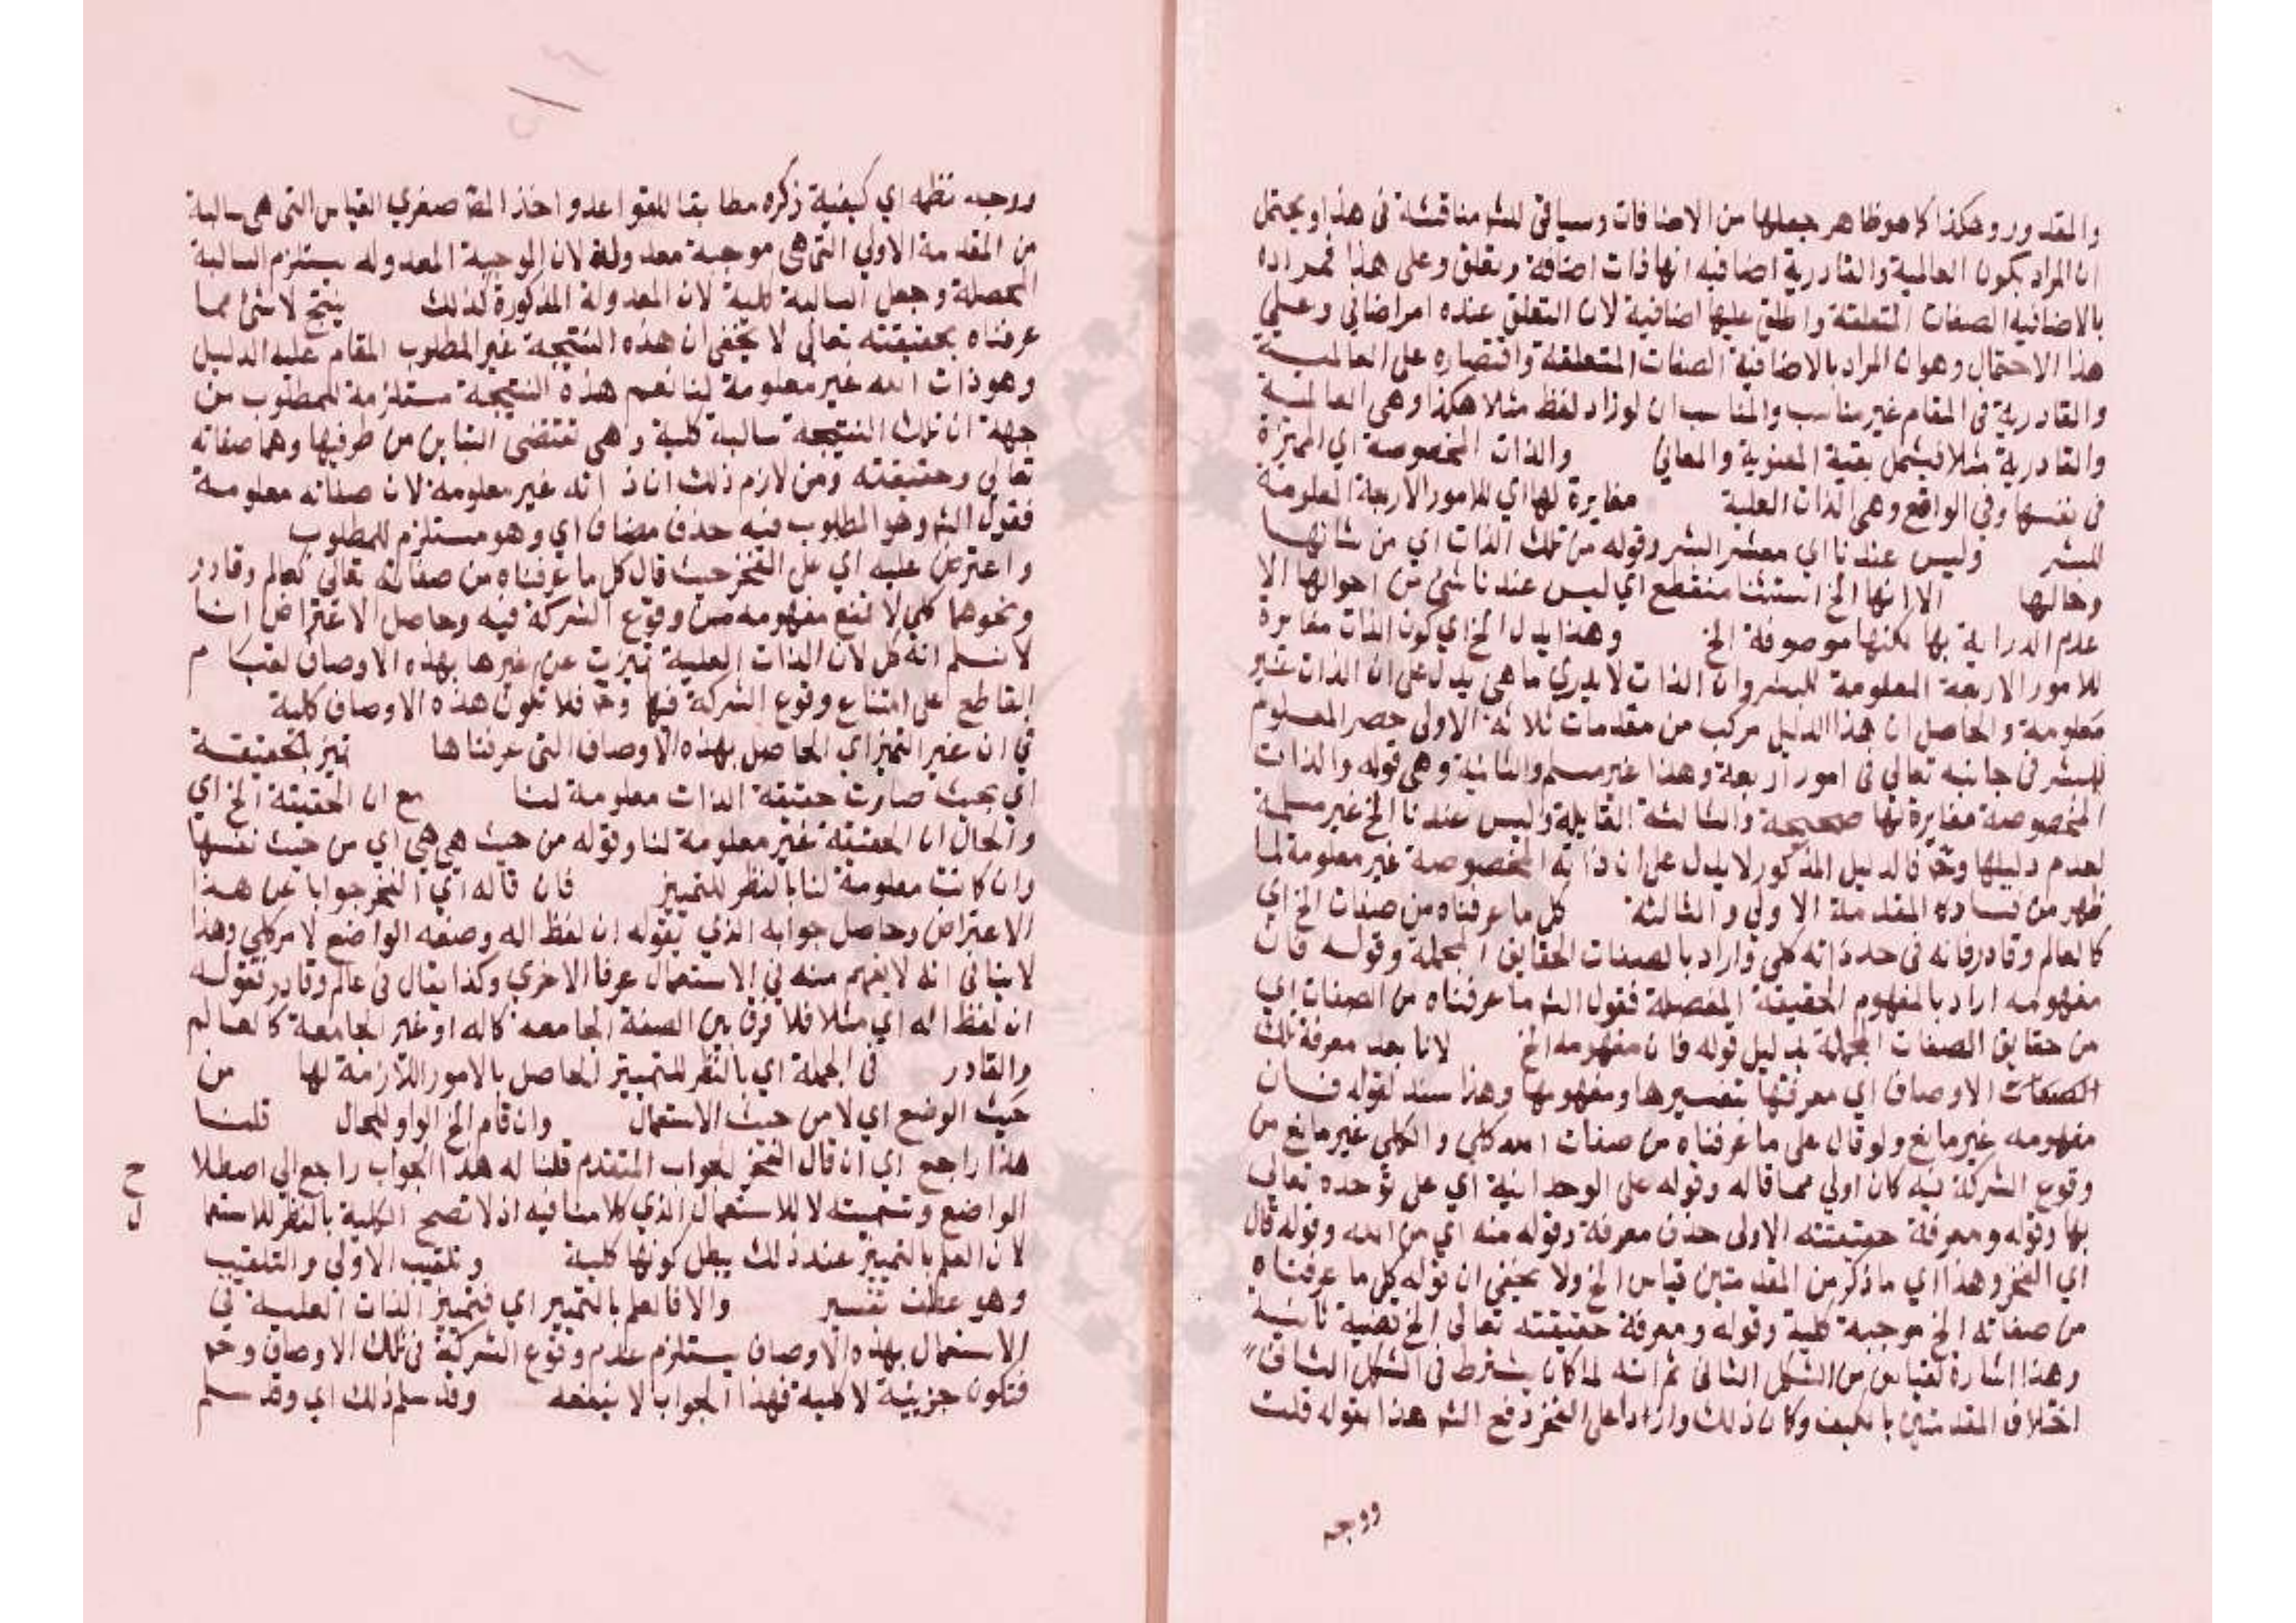 والمقدور وهكذا كما هو ظاهر جعلها من الاضافات وسياتى للشه مناقشة فى هذا ويحتمل
ان المراد بكون العالمية والقادرية اضافيه انها ذات اضافة وتعلق وعلى هذا فمراده
بالاضافيه الصفات المتعلقة واطلق عليها اضافية لان التعلق عنده امر اضافي وعلى
هذا الاحتمال وهو ان المراد بالاضافية الصفات المتعلقة واقتصاره على العالمية
والقادرية فى المقام غير مناسب والمناسب ان لو زاد لفظ مثلا هكذا وهى العالمية
والقادرية مثلا فيشمل بقية المعنوية والمعاني والذات المخصوصة اي المميزة
فى نفسها وفي الواقع وهى الذات العلية مغايرة لها اي للامور الاربعة المعلومة
للبشر وليس عندنا اي معشر البشر وقوله من تلك الذات اي من شانها
وحالها الا انها الخ استثنا منقطع اي ليس عندنا شئ من احوالها الا
عدم الدراية بها لكنها موصوفة الخ وهذا يدل الخ اي كون الذات مغايرة
للامور الاربعة المعلومة للبشر وان الذات لا يدري ما هى يدل على ان الذات غير
معلومة والحاصل ان هذا الدليل مركب من مقدمات ثلاثة الاولى حصر المعلوم
للبشر فى جانبه تعالى فى امور اربعة وهذا غير مسلم والثانية وهى قوله والذات
المخصوصة مغايرة لها صحيحة والثالثة القايلة وليس عندنا الخ غير مسلمة
لعدم دليلها وح فالدليل المذكور لا يدل على ان ذاته المخصوصة غير معلومة لما
ظهر من فساده المقدمة الاولى والثالثة كل ما عرفناه من صفات الخ اي
كالعالم وقادر فانه فى حد ذاته كلى واراد بالصفات الحقايق المجملة وقوله فان
مفهومه اراد بالمفهوم الحقيقة المفصلة فقول الشه ما عرفناه من الصفات اي
من حقايق الصفات المجملة بدليل قوله فان مفهومه الخ لانا بعد معرفة تلك
الصفات الاوصاف اي معرفتها بتفسيرها ومفهومها وهذا سند لقوله فان
مفهومه غير مانع ولو قال على ما عرفناه من صفات الله كلي والكلى غير مانع من
وقوع الشركة فيه كان اولي مما قاله وقوله على الوحدانية اي على توحده تعالى
بها وقوله ومعرفة حقيقته الاولى حذف معرفة وقوله منه اي من الله وقوله قال
اي الفخر وهذا اي ما ذكر من المقدمتين قياس الخ ولا يخفى ان قوله كل ما عرفناه
من صفاته الخ موجبة كلية وقوله ومعرفة حقيقته تعالى الخ قضية ثانية
وهذا اشارة لقياس من الشكل الثانى ثم انه لما كان يشترط فى الشكل الثانى
اختلاف المقدمتين بالكيف وكان ذلك واردا على الفخر دفع الشه هذا بقوله قلت
ووجه
ووجه نظمه اي كيفية ذكره مطابقا للقواعد واخذ المقا صغري القياس التى هى سالبة
من المقدمة الاولي التى هى موجبة معدولة لان الموجبة المعدوله يستلزم السالبة
المحصلة وجعل السالبة كلية لان المعدولة المذكورة كذلك ينتج لا شئ مما
عرفناه بحقيقته تعالى لا يخفى ان هذه النتيجة غير المطلوب المقام عليه الدليل
وهو ذات الله غير معلومة لنا نعم هذه النتيجة مستلزمة للمطلوب من
جهة ان تلك النتيجة سالبة كلية وهى تقتضى التباين من طرفيها وهما صفاته
تعالى وحقيقته ومن لازم ذلك ان ذاته غير معلومة لان صفاته معلومة
فقول الشه وهو المطلوب فيه حذف مضاف اي وهو مستلزم للمطلوب
واعترض عليه اي على الفخر حيث قال كل ما عرفناه من صفاته تعالى كعالم وقادر
ونحوهما كلي لا تمنع مفهومه من وقوع الشركة فيه وحاصل الاعتراض انا
لا نسلم انه كل لان الذات العلية تميزت عن غيرها بهذه الاوصاف لقيام
القاطع على امتناع وقوع الشركة فيها وح فلا تكون هذه الاوصاف كلية
في ان غير التميز اي الحاصل بهذه الاوصاف التى عرفناها تميز الحقيقة
اي بحيث صارت حقيقة الذات معلومة لنا مع ان الحقيقة الخ اي
والحال ان الحقيقة غير معلومة لنا وقوله من حيث هى هى اي من حيث نفسها
وان كانت معلومة لنا بالنظر للتمييز فان قاله اي الفخر جوابا عن هذا
الاعتراض وحاصل جوابه الذي يقوله ان لفظ اله وصفه الواضع لامر كلى وهذا
لا ينافى انه لا يفهم منه في الاستعمال عرفا الا جزئي وكذا يقال فى عالم وقادر فقوله
ان لفظ اله اي مثلا فلا فرق بين الصفة الجامعه كاله او غير الجامعة كالعالم
والقادر فى الجملة اي بالنظر للتمييز الحاصل بالامور اللازمة لها من
حيث الوضع اي لا من حيث الاستعمال وان قام الخ الواو للحال قلنا
هذا راجع اي ان قال الفخر الجواب المتقدم قلنا له هذا الجواب راجع الى اصطلا
ح
الواضع وتسميته لا للاستعمال الذي كلامنا فيه اذ لا تصح الكلية بالنظر للاستعما
ل
لان العلم بالتمييز عند ذلك يبطل كونها كلية وتلقيب الاولى والتلقيب
وهو عطف تفسير والا فالعلم بالتمييز اي فتمييز الذات العلية في
الاستعمال بهذه الاوصاف يستلزم عدم وقوع الشركة فى تلك الاوصاف وح
فتكون جزيية لا كلية فهذا الجواب لا ينفعه وقد سلم ذلك اي وقد سلم